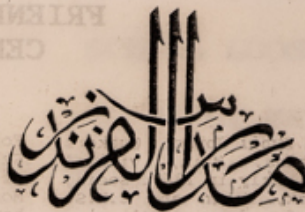 مدارس الفرندز